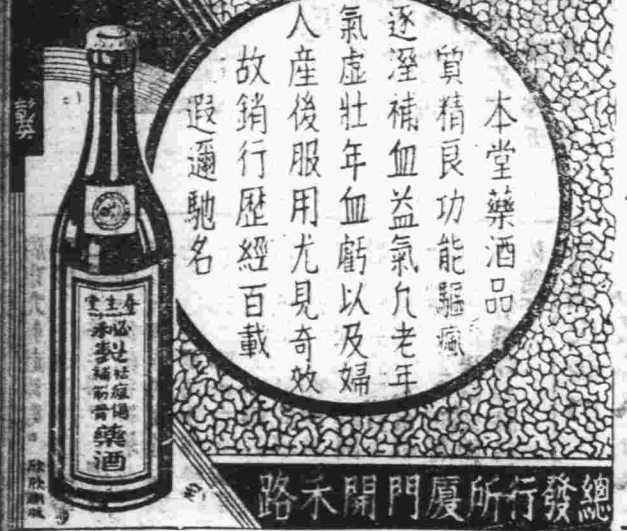 本堂藥酒品
質精良功能驅瘋
逐溼補血益氣凢老年
氣虛壯年血虧以及婦
人產後服用尤見奇效
故銷行歷經百載
遐邇馳名
春生堂
補筋骨
藥酒
總發行所廈門開禾路